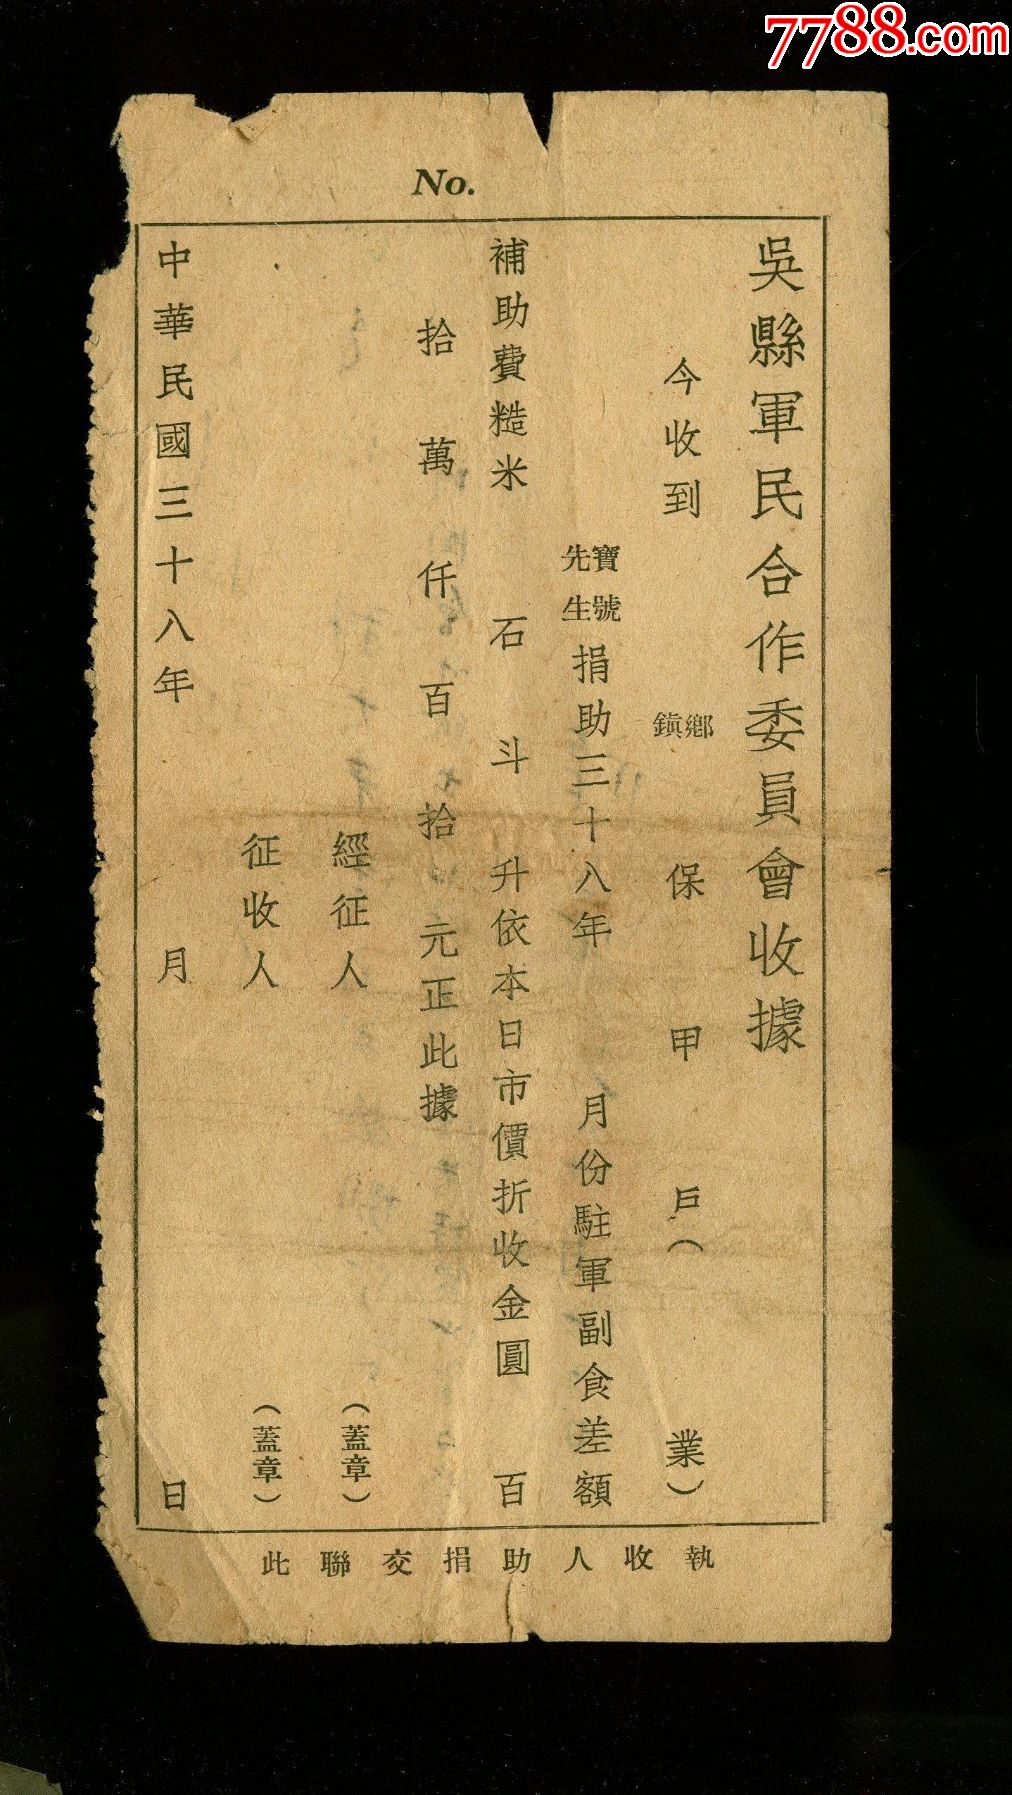 7788.com
No.
吳縣軍民合作委員會收據
今收到 鄉鎮 保 甲 戶（ 業）
寶號先生捐助三十八年 月份駐軍副食差額
補助費糙米 石 斗 升依本日市價折收金圓 百
拾 萬 仟 百 拾 元正此據
經征人 （蓋章）
征收人 （蓋章）
中華民國三十八年 月 日
此聯交捐助人收執